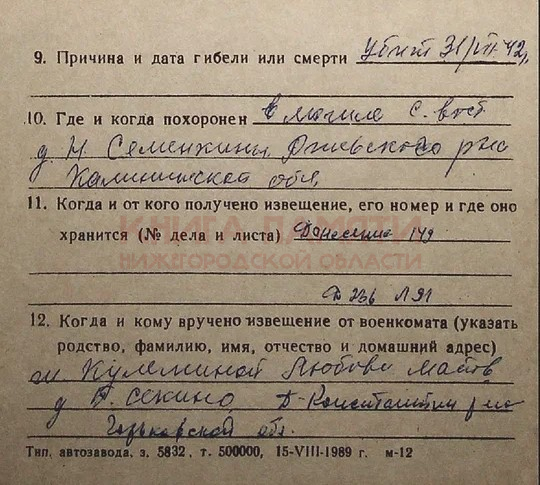 9. Причина и дата гибели или смерти убит 31/VII-42,
10. Где и когда похоронен в могиле с. вост
д. Н Семенкины Ржевского р-на
Калининской обл
11. Когда и от кого получено извещение, его номер и где оно
КНИГА ПАМЯТИ
хранится (№ дела и листа) Донесение
НИЖЕГОРОДСКОЙ ОБЛАСТИ
Д 236 Л 91
12. Когда и кому вручено извещение от военкомата (указать
родство, фамилию, имя, отчество и домашний адрес)
Кулеминой Любови
д. Д-Константин р-на
Горьковской обл.
Тип. автозавода, з. 5832, т. 500000, 15-VIII-1989 г. м-12